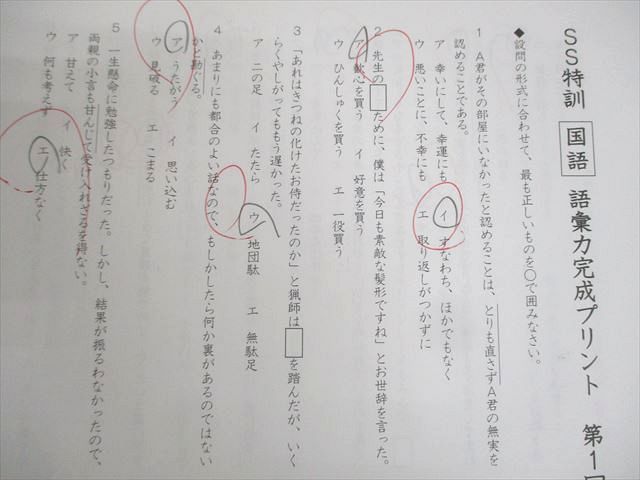 SS特訓 国語 語彙力完成プリント 第1回
◆設問の形式に合わせて、最も正しいものを○で囲みなさい。
1 A君がその部屋にいなかったと認めることは、とりも直さずA君の無実を
認めることである。
ア 幸いにして、幸運にも イ すなわち、ほかでもなく
ウ 悪いことに、不幸にも エ 取り返しがつかずに
2 先生の□ために、僕は「今日も素敵な髪形ですね」とお世辞を言った。
ア 歓心を買う イ 好意を買う
ウ ひんしゅくを買う エ 一役買う
3 「あれはきつねの化けたお侍だったのか」と猟師は□を踏んだが、いく
らくやしがってももう遅かった。
ア 二の足 イ たたら ウ 地団駄 エ 無駄足
4 あまりにも都合のよい話なので、もしかしたら何か裏があるのではない
かと勘ぐる。
ア うたがう イ 思い込む
ウ 見破る エ こまる
5 一生懸命に勉強したつもりだった。しかし、結果が振るわなかったので、
両親の小言も甘んじて受け入れざるを得ない。
ア 甘えて イ 快く
ウ 何も考えず エ 仕方なく